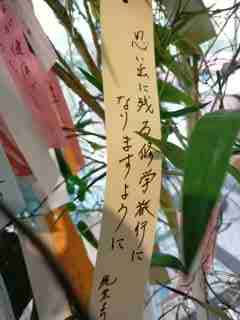 思い出に残る修学旅行に
なりますように